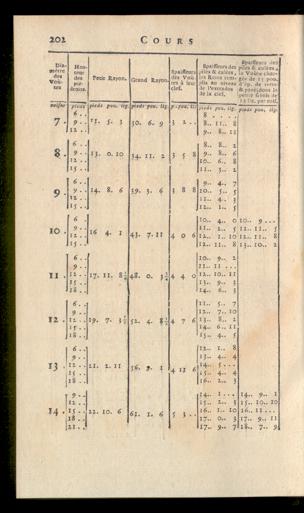 202 COURS
Dia-
mètre
des
Voû-
tes
Hau-
teur
des
pié-
droits.
Petit Rayon.
Grand Rayon.
Epaisseurs
des Voû-
tes à leur
clef.
Epaisseurs des
piles & culées,
les Reins rem-
plis au niveau
de l'extrados
de la clef.
Epaisseurs des
piles & culées,
la Voûte char-
gée de 11 pou.
d'ép. de terre
toises pieds pieds pou. lig. pieds pou. lig. p. pou. lig. pieds pou. lig. pieds pou. lig.
7. 6.. 9.. 12.. 15.. 5. 3 30. 6. 9 3 2..
8..
8.. 11.. 8
9.. 8.. 11
8. 6.. 9.. 12.. 15.. 13. 0. 10 34. 11. 2 3 5 8
8.. 8.. 8
9.. 8.. 6
10.. 6.. 8
11.. 3.. 2
9. 6.. 9.. 12.. 15.. 14. 8. 6 39. 3. 6 3 8 8
9.. 4.. 7
10.. 5.. 5
11.. 4.. 3
12.. 1.. 5
10. 6.. 9.. 12.. 15.. 16 4. 1 43. 7. 11 4 0 6
10.. 4.. 0 10.. 9...
11.. 2.. 5 11.. 11.. 5
12.. 1.. 10 12.. 11.. 8
12.. 11.. 8 13.. 10.. 2
11. 6.. 9.. 12.. 15.. 18.. 17. 11. 8½ 48. 0. 3¼ 4 4 0
10.. 9.. 2
11.. 11...
12.. 10.. 11
13.. 9.. 3
14.. 6.. 3
12. 6.. 9.. 12.. 15.. 18.. 19. 7. 3 52. 4. 8 4 7 6
11.. 5.. 7
12.. 7.. 10
13.. 8.. 2
14.. 6.. 11
15.. 4.. 5
13. 6.. 9.. 12.. 15.. 18.. 21. 2. 11 56. 9. 1 4 11 6
12.. 1.. 8
13.. 4.. 4
14.. 5...
15.. 4.. 4
16.. 2.. 3
14. 9.. 12.. 15.. 18.. 21.. 22. 10. 6 61. 1. 6 5 3..
14.. 1... 14.. 9.. 1
15.. 2.. 3 15.. 10.. 10
16.. 1.. 10 16.. 11...
17.. 0.. 3 17.. 9.. 11
17.. 9.. 7 18.. 7.. 9